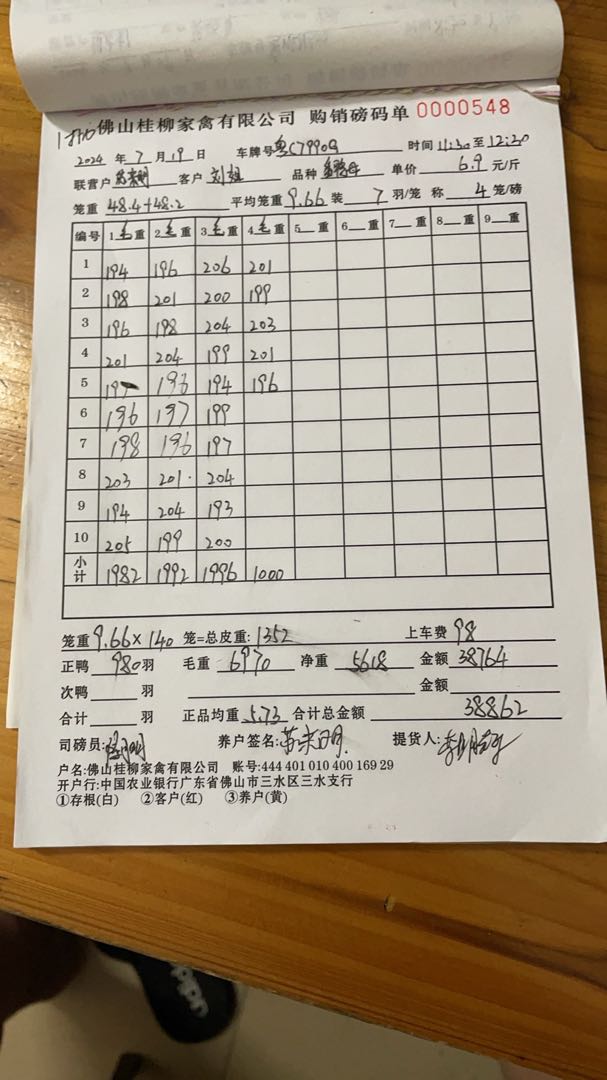 佛山桂柳家禽有限公司 购销磅码单 0000548
2024 年 7 月 19 日 车牌号 粤C7990G 时间 11:30 至 12:20
联营户 客户 刘姐 品种 单价 6.9 元/斤
笼重 48.4+48.2 平均笼重 9.66 装 7 羽/笼 称 4 笼/磅
编号 1 毛 重 2 毛 重 3 毛 重 4 毛 重 5 重 6 重 7 重 8 重 9 重
1 194 196 206 201
2 198 201 200 199
3 196 198 204 203
4 201 204 199 201
5 197 196 194 196
6 196 197 199
7 198 196 197
8 203 201 204
9 194 204 193
10 205 199 200
小计 1982 1992 1996 1000
笼重 9.66 × 140 笼=总皮重: 1352 上车费 98
正鸭 980 羽 毛重 6970 净重 5618 金额 38764
次鸭 羽 金额
合计 羽 正品均重 5.73 合计总金额 38862
司磅员: 养户签名: 提货人:
户名:佛山桂柳家禽有限公司 账号:444 401 010 400 169 29
开户行:中国农业银行广东省佛山市三水区三水支行
①存根(白) ②客户(红) ③养户(黄)